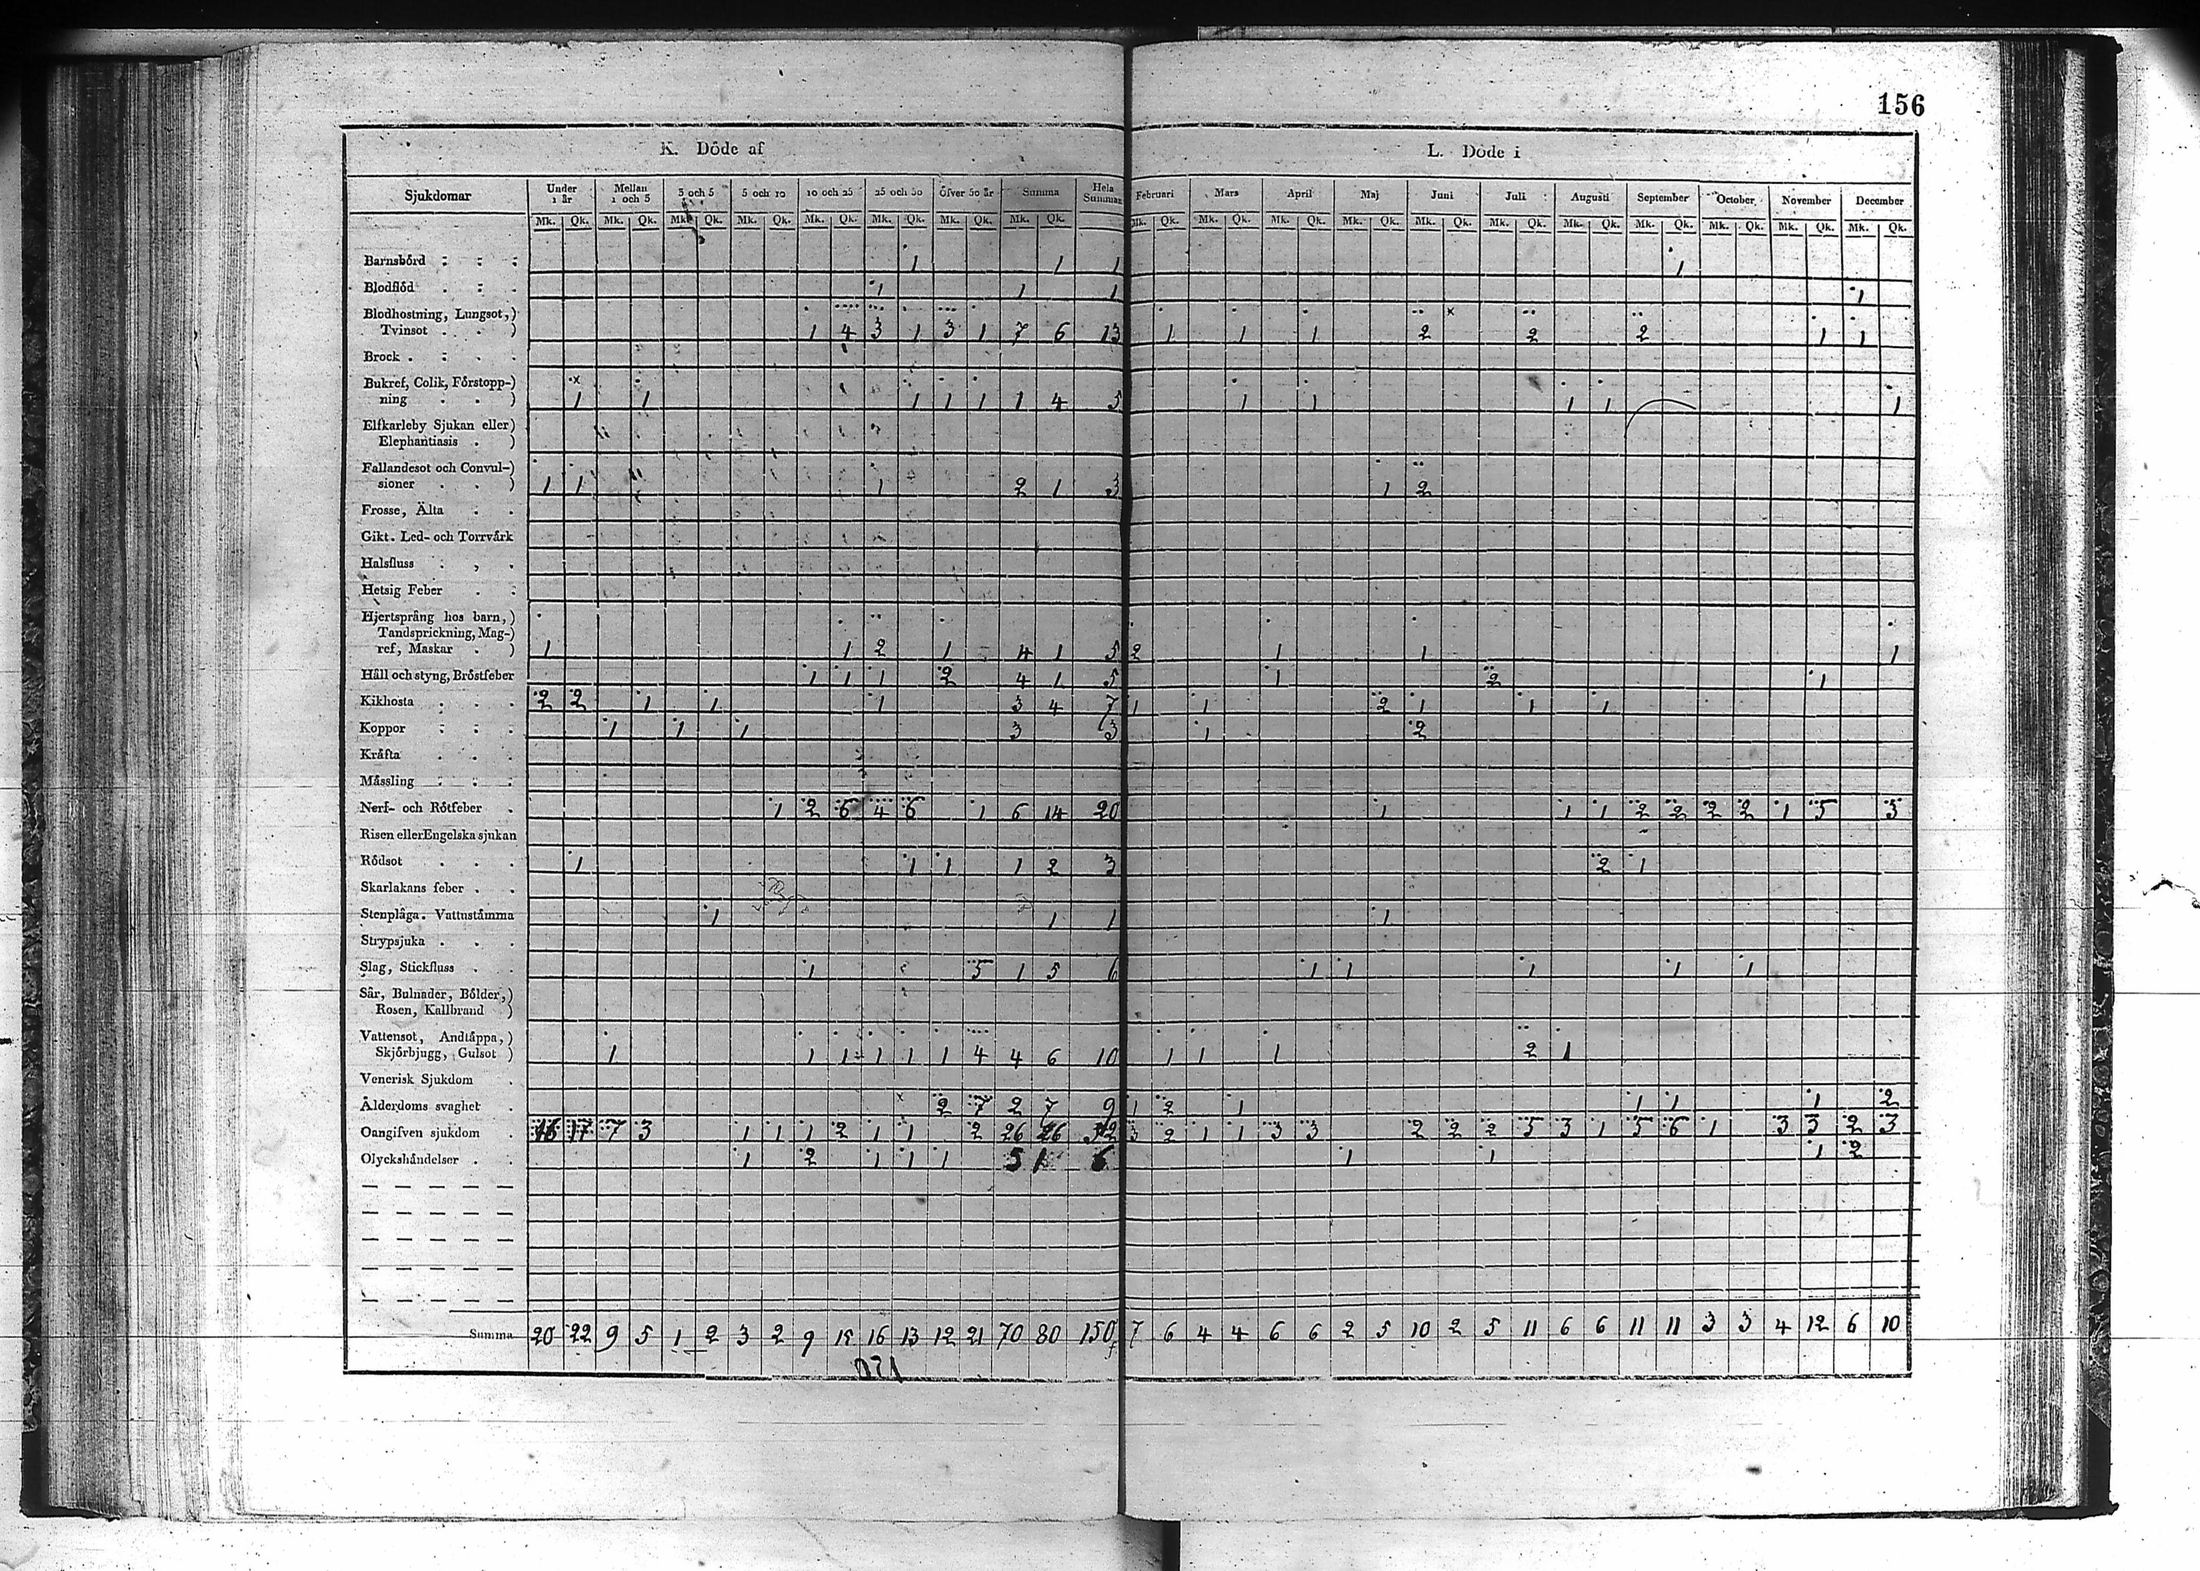 156
K. Döde af
L. Döde i
Sjukdomar Under 1 år Mellan 1 och 3 3 och 5 5 och 10 10 och 25 25 och 50 Öfver 50 år Summa Hela Summan Februari Mars April Maj Juni Juli Augusti September October November December
Mk. Qk. Mk. Qk. Mk. Qk. Mk. Qk. Mk. Qk. Mk. Qk. Mk. Qk. Mk. Qk. Mk. Qk. Mk. Qk. Mk. Qk. Mk. Qk. Mk. Qk. Mk. Qk. Mk. Qk. Mk. Qk. Mk. Qk. Mk. Qk. Mk. Qk.
Barnsbörd 1 1 1 1
Blodflöd 1 1 1 1
Blodhostning, Lungsot,)
Tvinsot . . ) 1 4 3 1 3 1 7 6 13 1 1 1 2 2 2 1 1
Brock
Bukref, Colik, Förstopp-)
ning . . ) 1 1 1 1 1 1 4 5 1 1 1 1 1
Elfkarleby Sjukan eller)
Elephantiasis . )
Fallandesot och Convul-)
sioner . . ) 1 1 1 2 1 3 1 2
Frosse, Älta
Gikt. Led- och Torrvärk
Halsfluss
Hetsig Feber
Hjertsprång hos barn,)
Tandsprickning, Mag-)
ref, Maskar . ) 1 1 2 1 4 1 5 2 1 1 1
Håll och styng, Bröstfeber 1 1 1 2 4 1 5 1 2 1
Kikhosta 2 2 1 1 1 3 4 7 1 1 2 1 1 1
Koppor 1 1 1 3 3 1 2
Kräfta
Mässling
Nerf- och Rötfeber 1 2 6 4 6 1 6 14 20 1 1 1 2 2 2 2 1 5 3
Risen eller Engelska sjukan
Rödsot 1 1 1 1 2 3 2 1
Skarlakans feber
Stenplåga. Vattustämma 1 1 1 1
Strypsjuka
Slag, Stickfluss 1 5 1 5 6 1 1 1 1 1
Sår, Bulnader, Bölder,)
Rosen, Kallbrand )
Vattensot, Andtäppa,)
Skjörbjugg, Gulsot ) 1 1 1 1 1 1 4 4 6 10 1 1 1 2 1
Venerisk Sjukdom
Ålderdoms svaghet 2 7 2 7 9 1 2 1 1 1 1 2
Oangifven sjukdom 16 17 7 3 1 1 1 2 1 1 2 26 26 52 3 2 1 1 3 3 2 2 2 5 3 1 5 6 1 3 3 2 3
Olyckshändelser 1 2 1 1 1 5 1 6 1 1 1 2
Summa 20 22 9 5 1 2 3 2 9 15 16 13 12 21 70 80 150 7 6 4 4 6 6 2 5 10 2 5 11 6 6 11 11 3 3 4 12 6 10